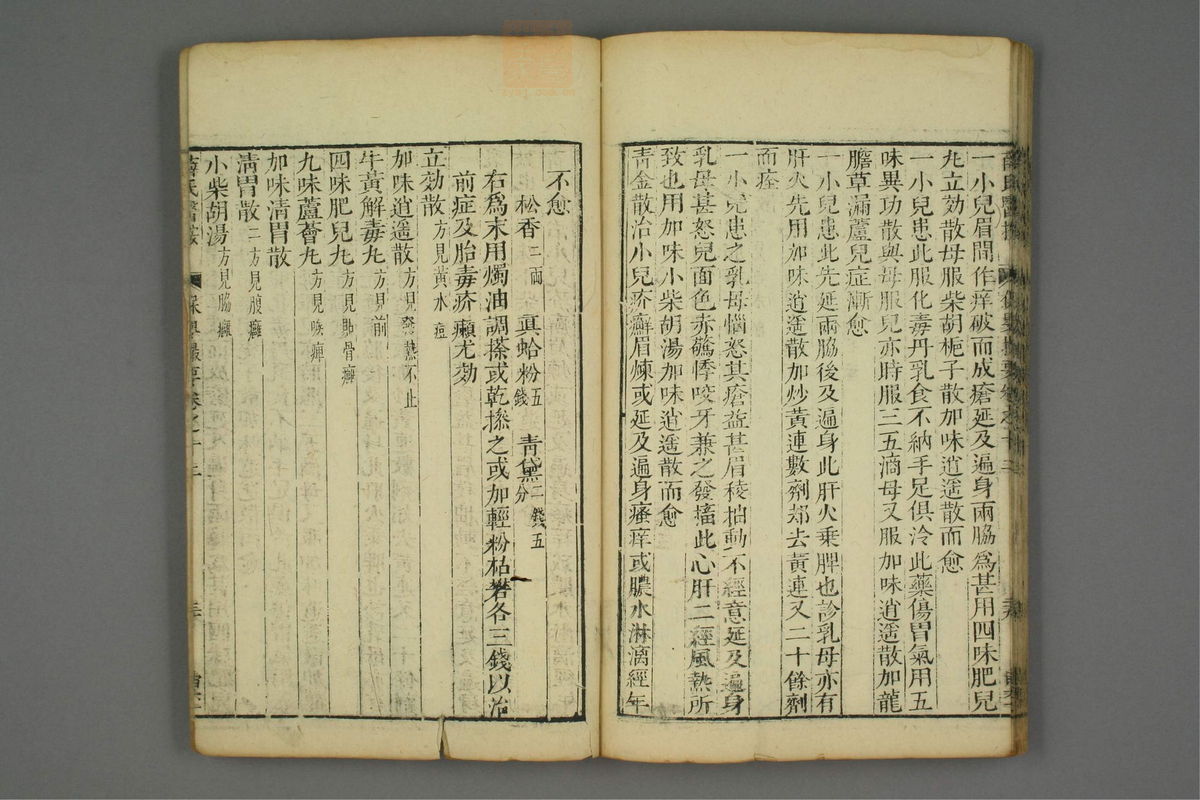 一小兒眉間作痒破而成瘡延及遍身兩脇為甚用四味肥兒
丸立効散母服柴胡栀子散加味逍遥散而愈
一小兒患此服化毒丹乳食不納手足俱冷此藥傷胃氣用五
味異功散與母服兒亦時服三五滴母又服加味逍遥散加龍
膽草漏蘆兒症漸愈
一小兒患此先延兩脇後及遍身此肝火乘脾也診乳母亦有
肝火先用加味逍遥散加炒黃連數劑却去黃連又二十餘劑
而痊
一小兒患之乳母惱怒其瘡益甚眉稜抽動不經意延及遍身
乳母甚怒兒面色赤驚悸咬牙兼之發搐此心肝二經風熱所
致也用加味小柴胡湯加味逍遥散而愈
青金散治小兒疥癬眉煉或延及遍身瘙痒或膿水淋漓經年
不愈
松香二兩 眞蛤粉五錢 青黛二錢五分
右為末用燭油調搽或乾摻之或加輕粉枯礬各三錢以治
前症及胎毒疥癩尤効
立効散方見黃水瘡
加味逍遥散方見發熱不止
牛黃解毒丸方見前
四味肥兒丸方見貼骨癰
九味蘆薈丸方見喉痺
加味清胃散
清胃散二方見腹癰
小柴胡湯方見脇癰
薛氏醫案 保嬰撮要卷之十二